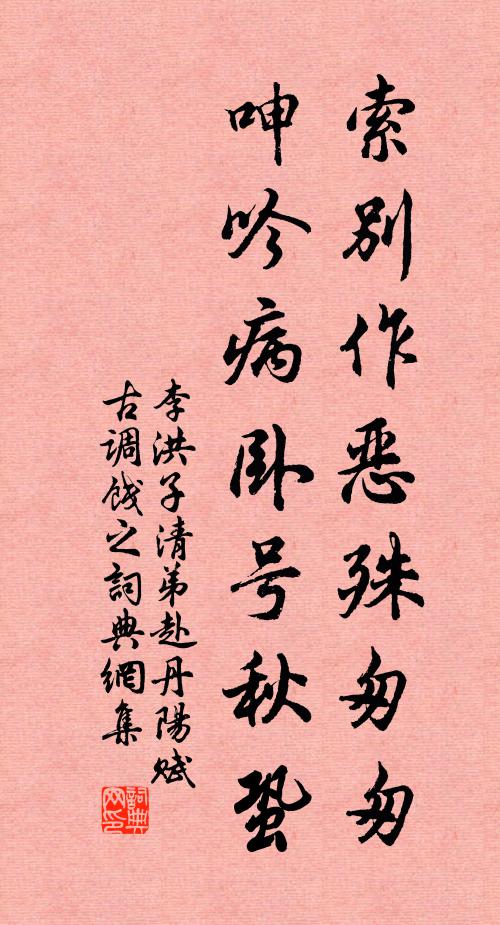 索别作恶殊匆匆
呻吟病卧号秋蛩
李洪子清弟赴丹陽赋
古调餞之詞典網集
詞典
网印